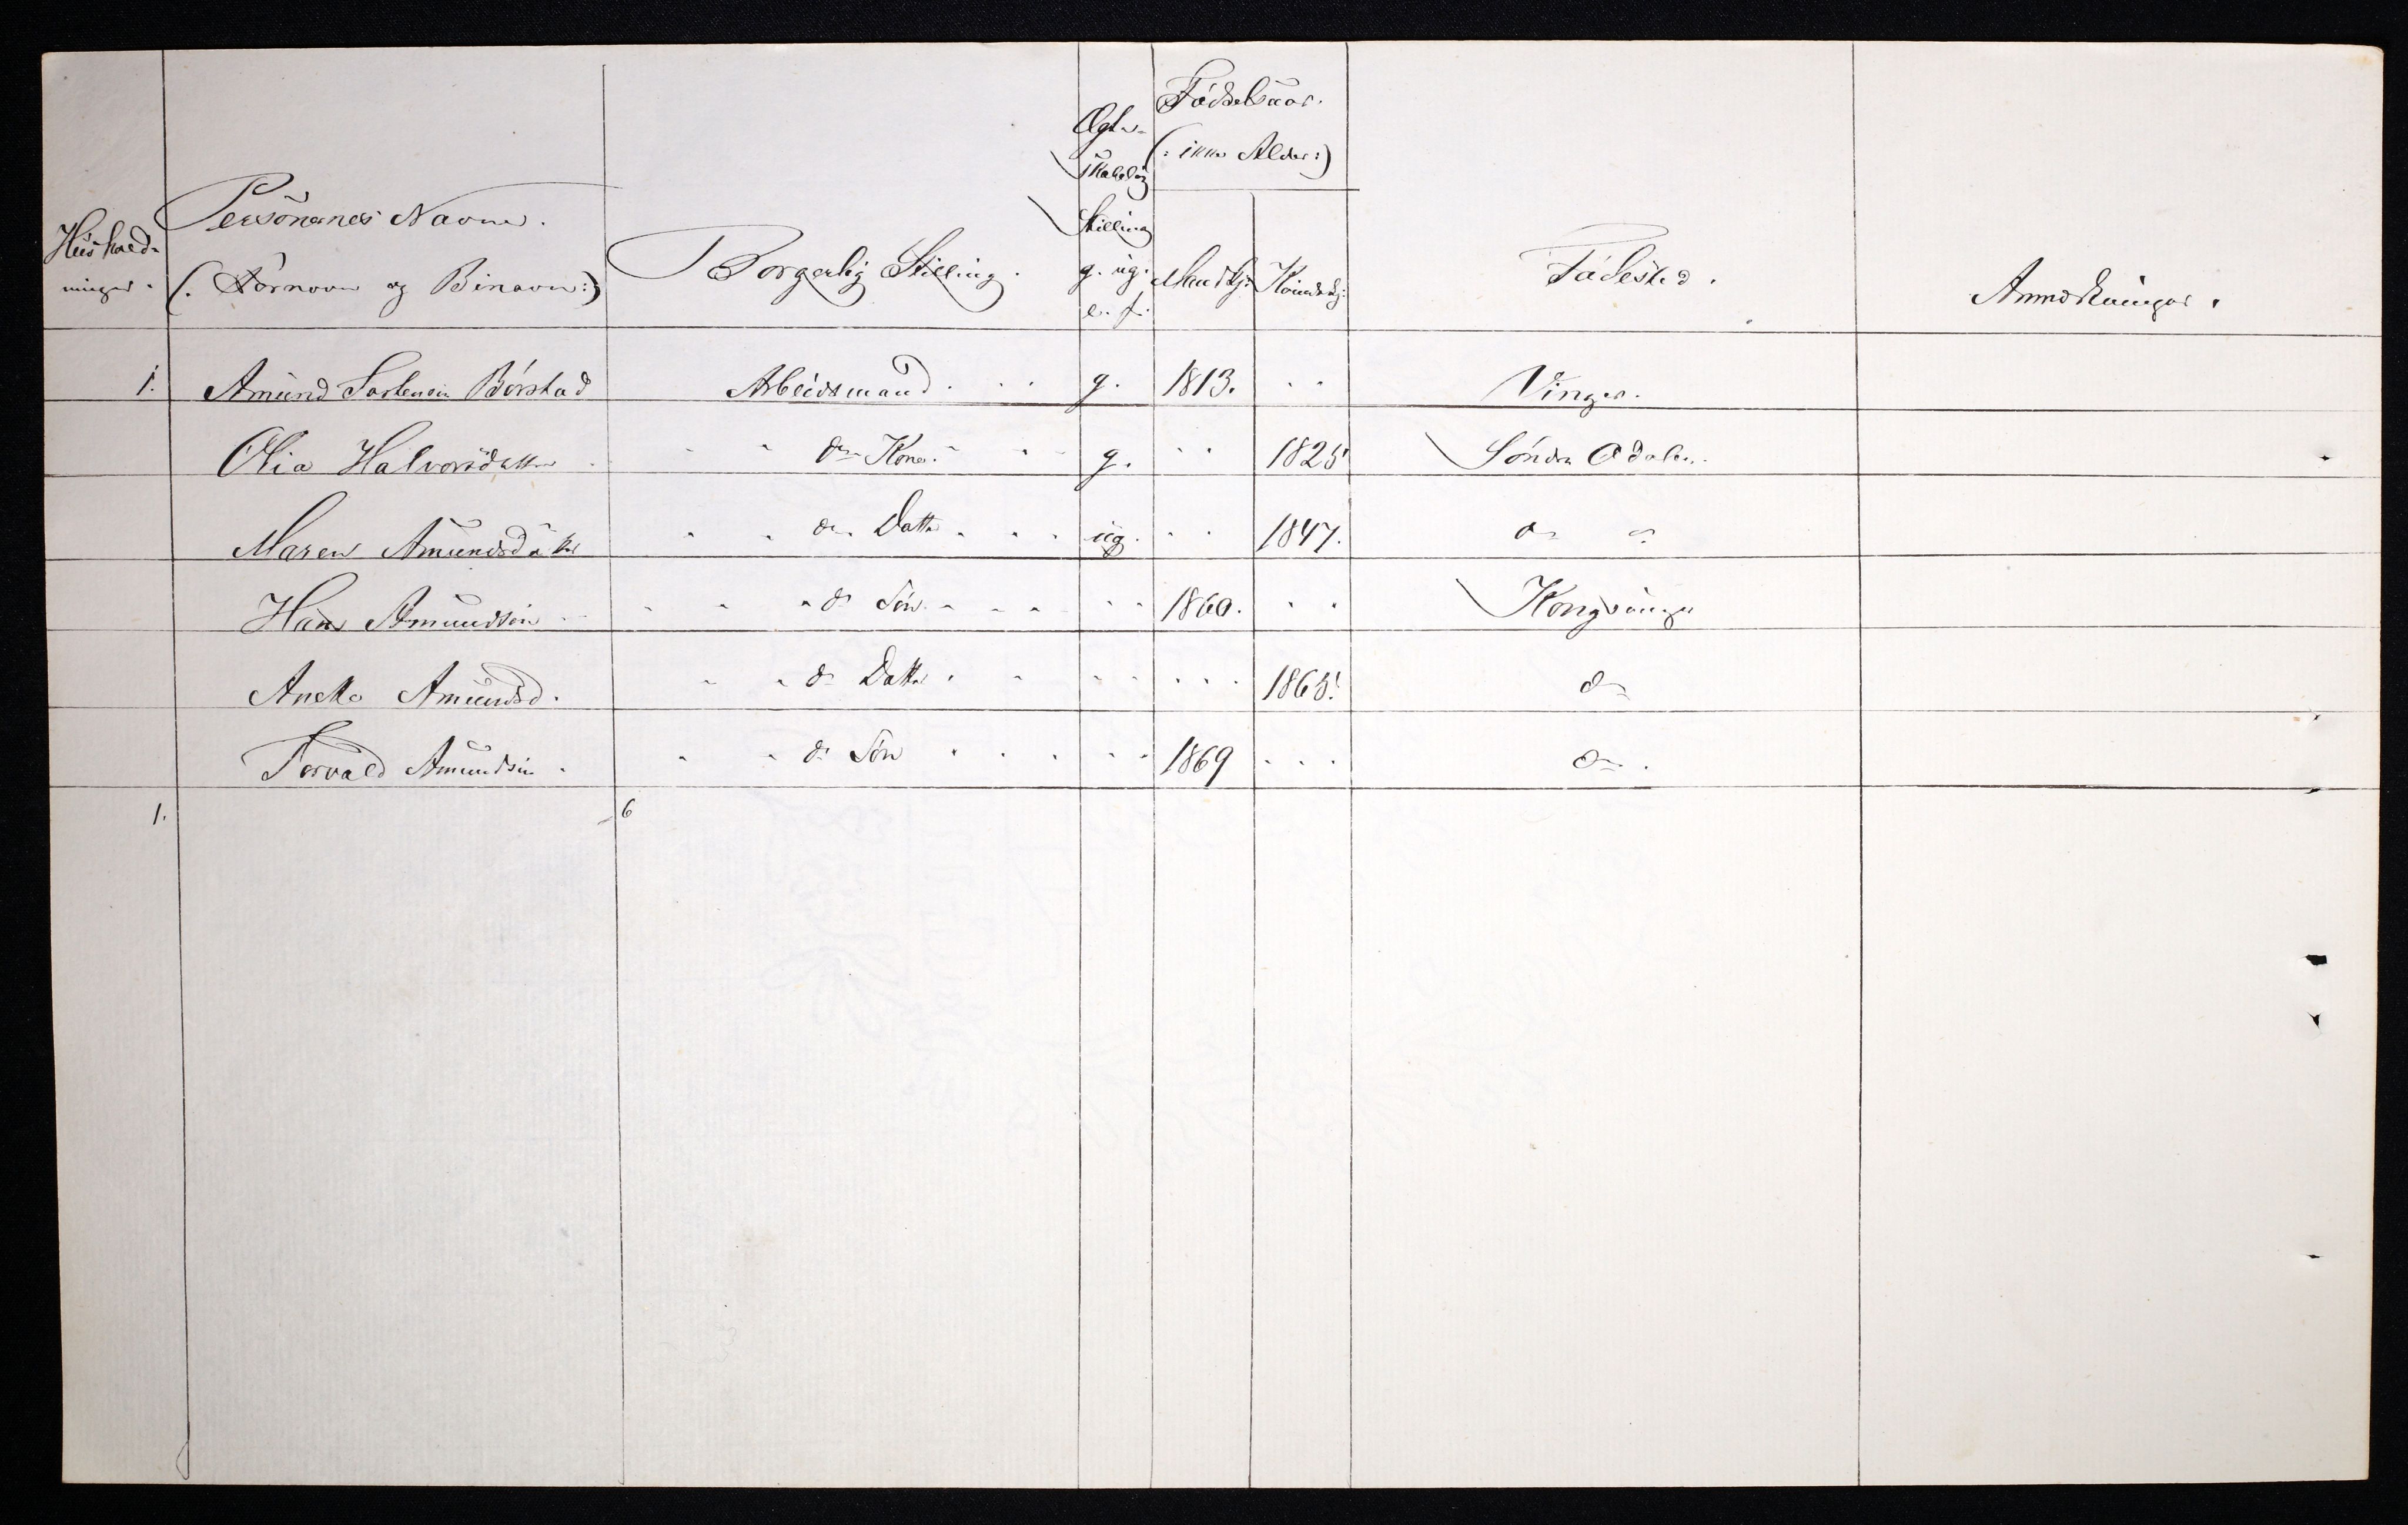 Huushold-
ninger.
Personernes Navne.
(: Fornavn og Binavn :)
Borgerlig Stilling.
Ægte-
skabelig
Stilling
g. ug.
e. f.
Fødselsaar.
(: ikke Alder :)
Mandkj. Kvindekj:
Fødested.
Anmærkninger.
1. Amund Børstad Arbeidsmand . . . g. 1813. . . Vinger.
Olia Halvorsdatter . " " ds Kone. " " g. . . 1825 Søndre Odalen.
Maren Amundsdatter " " ds Datter . . . ug. . . 1847. do do
Hans Amundsen " " " ds Søn . . . . . 1860. . . Kongsvinger
Amundsd. " " ds Datter . . . . . . . 1865. do
Torvald Amundsen . " " ds Søn . . . . . 1869 . . . do .
1. 6